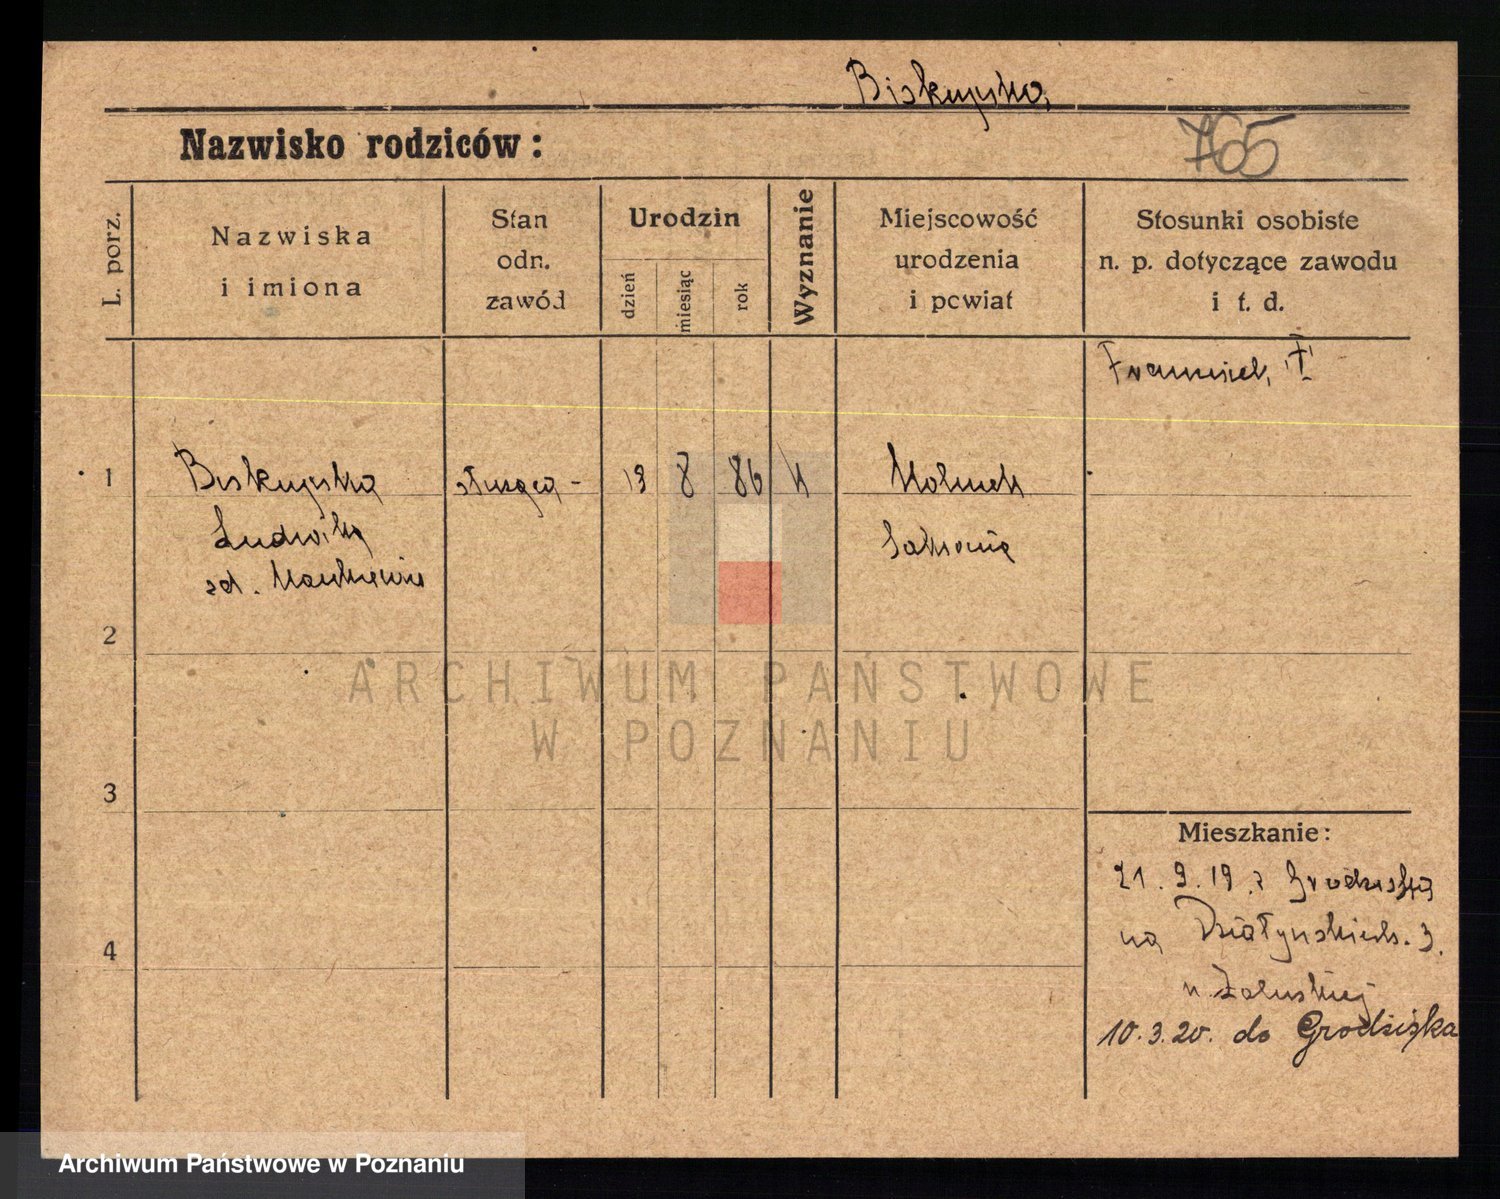 Biskupska
765
Nazwisko rodziców:
L. porz.
Nazwiska
i imiona
Stan
odn.
zawód
Urodzin
dzień
miesiąc
rok
Wyznanie
Miejscowość
urodzenia
i powiat
Stosunki osobiste
n. p. dotyczące zawodu
i t. d.
1
Biskupska
Ludwika
służąca -
13
8
86
2
3
4
Mieszkanie:
21.9.19 z Grodziska
na Działyńskich. 3.
u Załuskiej
10.3.20. do Grodziska
ARCHIWUM PAŃSTWOWE
W POZNANIU
Archiwum Państwowe w Poznaniu